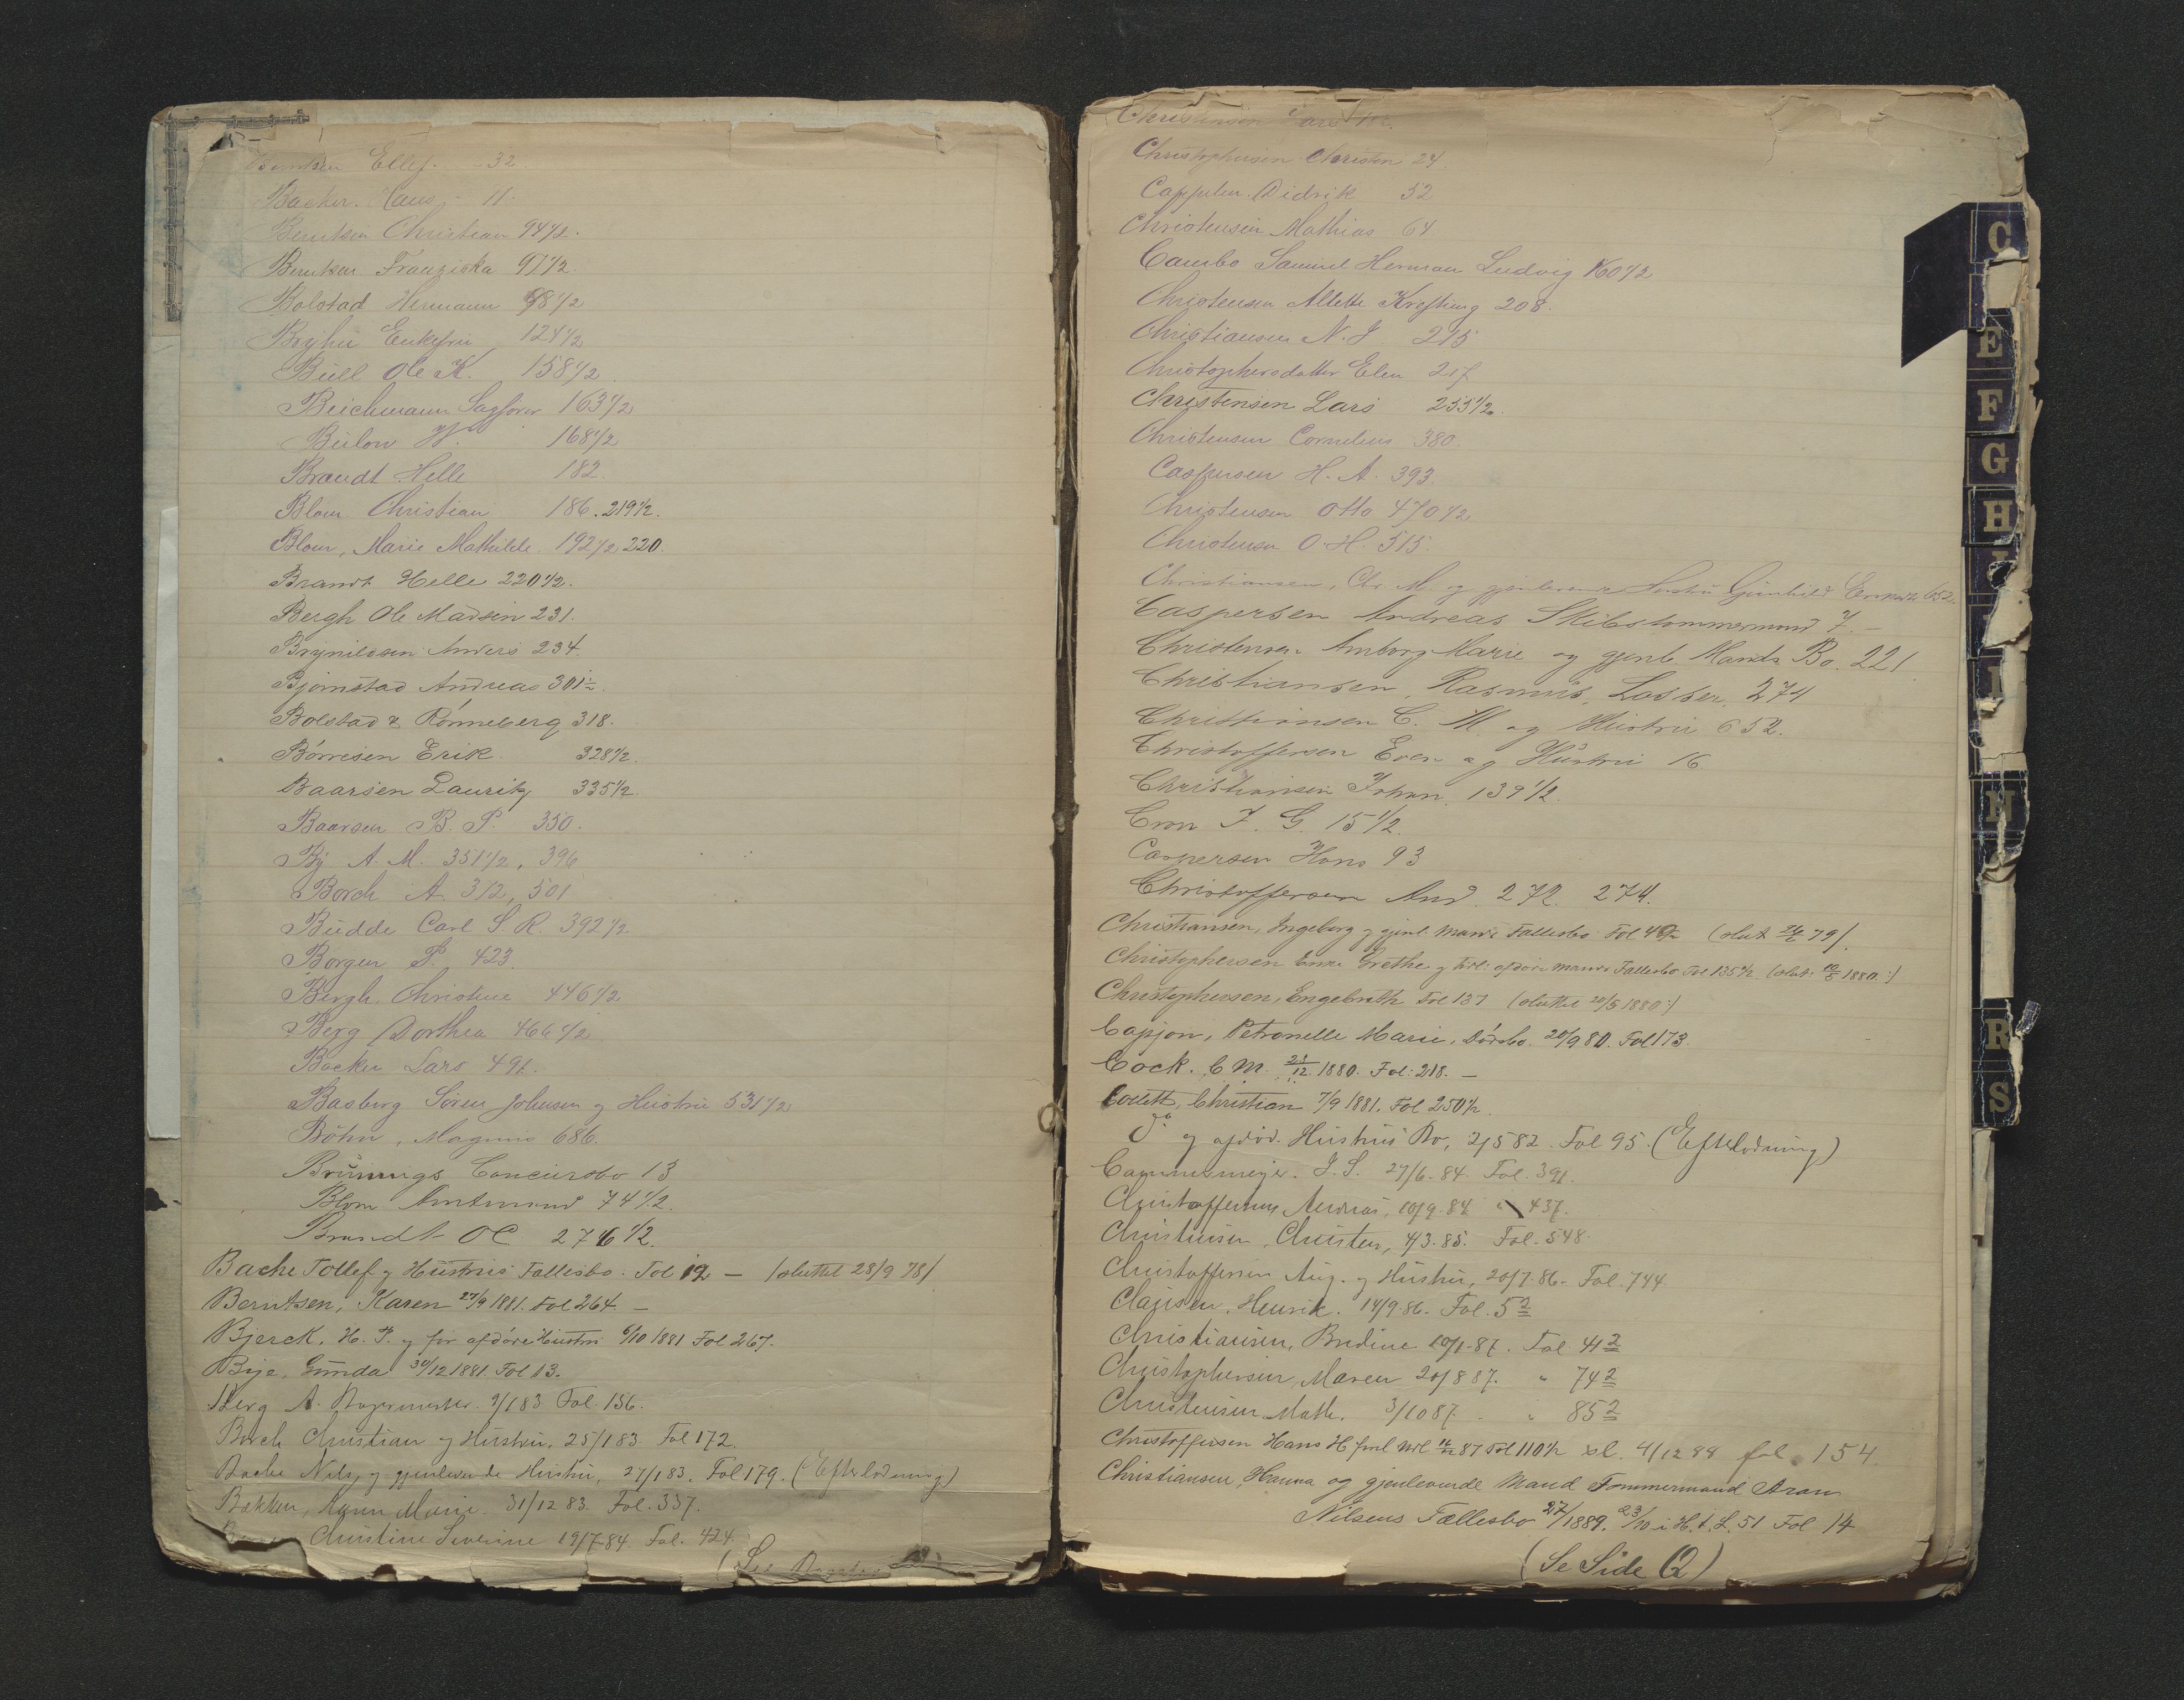 Berntsen Ellef. 32.
Backer. Claus. 11.
Berntsen Christian 94 1/2.
Berntsen Franziska 97 1/2
Bolstad Hermann 98 1/2
Bryhn Enkefru 124 1/2
Büll Ole K. 158 1/2
Beichmann Sagfører 163 1/2
Bülow W. 168 1/2
Brandt Helle 182.
Blom Christian 186. 219 1/2.
Blom, Marie Mathilde. 192 1/2 220.
Brandt Helle 220 1/2.
Bergh Ole Madsen 231.
Brynildsen Anders 234.
Bjørnstad Andreas 301 1/2.
Bolstad & Rønneberg 318.
Børresen Erik. 328 1/2.
Baarsen Lauritz 335 1/2.
Baarsen B. P. 350.
By A. M. 351 1/2, 396
Borch A. 372, 501
Budde Carl S. R. 392 1/2
Borgen P. 423.
Bergh, Christine 446 1/2
Berg Dorthea 466 1/2
Backer Lars 491.
Basberg Søren Johnsen og Hustru 531 1/2
Böhn, Magnus 686.
Brünings Concursbo 13
Blom Amtmand 74 1/2.
Brandt O C. 276 1/2.
Bache Tollef og Hustrus Fællesbo. Fol 12 — (sluttet 28/9 78)
Berntsen, Karen 27/9 1881. Fol 264 —
Bjerck, H. P. og før afdøde Hustru 6/10 1881 Fol 267.
Bye, Gunda 30/12 1881. Fol 13.
Berg A. Bagermester. 9/1 83 Fol. 156.
Borch Christian og Hustru, 25/1 83 Fol 172.
Bache Nils, og gjenlevende Hustru, 27/1 83. Fol 179. (Efterlodning)
Bakken, Karen Marie. 31/12 83. Fol. 337.
Christine Severine 19/7 84. Fol. 424.
(See
Christensen Lars
Christophersen Christen 24
Cappelen. Didrik 52
Christensen Mathias 64
Cambo Samuel Herman Ludvig 160 1/2
Christensen Allette Krefting 208.
Christiansen N. J. 215
Christophersdatter Elen 217
Christensen Lars 255 1/2.
Christensen Cornelius 380.
Caspersen H. A. 393.
Christensen Otto 470 1/2
Christensen O. H. 515.
Christiansen, Chr. M. og gjenlevende Hustru Gunhild 652.
Caspersen Andreas Skibstømmermand 7. —
Christensen Amborg Marie og gjenl. Mands Bo. 221
Christiansen, Rasmus, Losser, 274
Christiansen C. M. og Hustru 652.
Christoffersen Even og Hustru 16.
Christiansen Johan, 139 1/2.
Cron J. G. 15 1/2.
Caspersen Hans 93
Christoffersen And. 272. 274.
Christiansen, Ingeborg og gjenl. Mands Fællesbo Fol 49 1/2 (slut. 79)
Christophersen Anne Grethe og før afdøde mands Fællesbo Fol 135 1/2 (slut. 1880.)
Christophersen, Engebreth Fol 137 (sluttet 20/5 1880)
Capjon, Petronelle Marie, Dødsbo. 20/9 80. Fol 173
Cock. C M. 23/12 1880. Fol: 218. —
Collett, Christian 7/9 1881. Fol 250 1/2.
Do og afdød. Hustrus Bo, 2/5 82. Fol 95. (Efterlodning)
Cammermeyer. J. S. 27/6-84. Fol. 391.
Christoffersen Andreas, 10/9-84 " 437.
Christensen, Christen, 4/3-85. Fol. 548.
Christoffersen Aug. og Hustru, 20/7-86- Fol. 744.
Clausen, Henrik. 14/9 86. Fol. 5 2
Christiansen, Bredine 10/1-87. Fol. 41 2
Christophersen, Maren 20/8 87. " 74 2
Christensen Math. 3/10 87. " 85 2
Christoffersen Hans H 87 Fol 110 1/2 sl. 4/12 88 fol. 154
Christiansen, Hanna og gjenlevende Mand Tømmermand Aron
Nilsens Fællesbo 1889. 23/10 i H. t. L. 51 Fol 14
(Se Side Q)
C
E
F
G
H
R
S